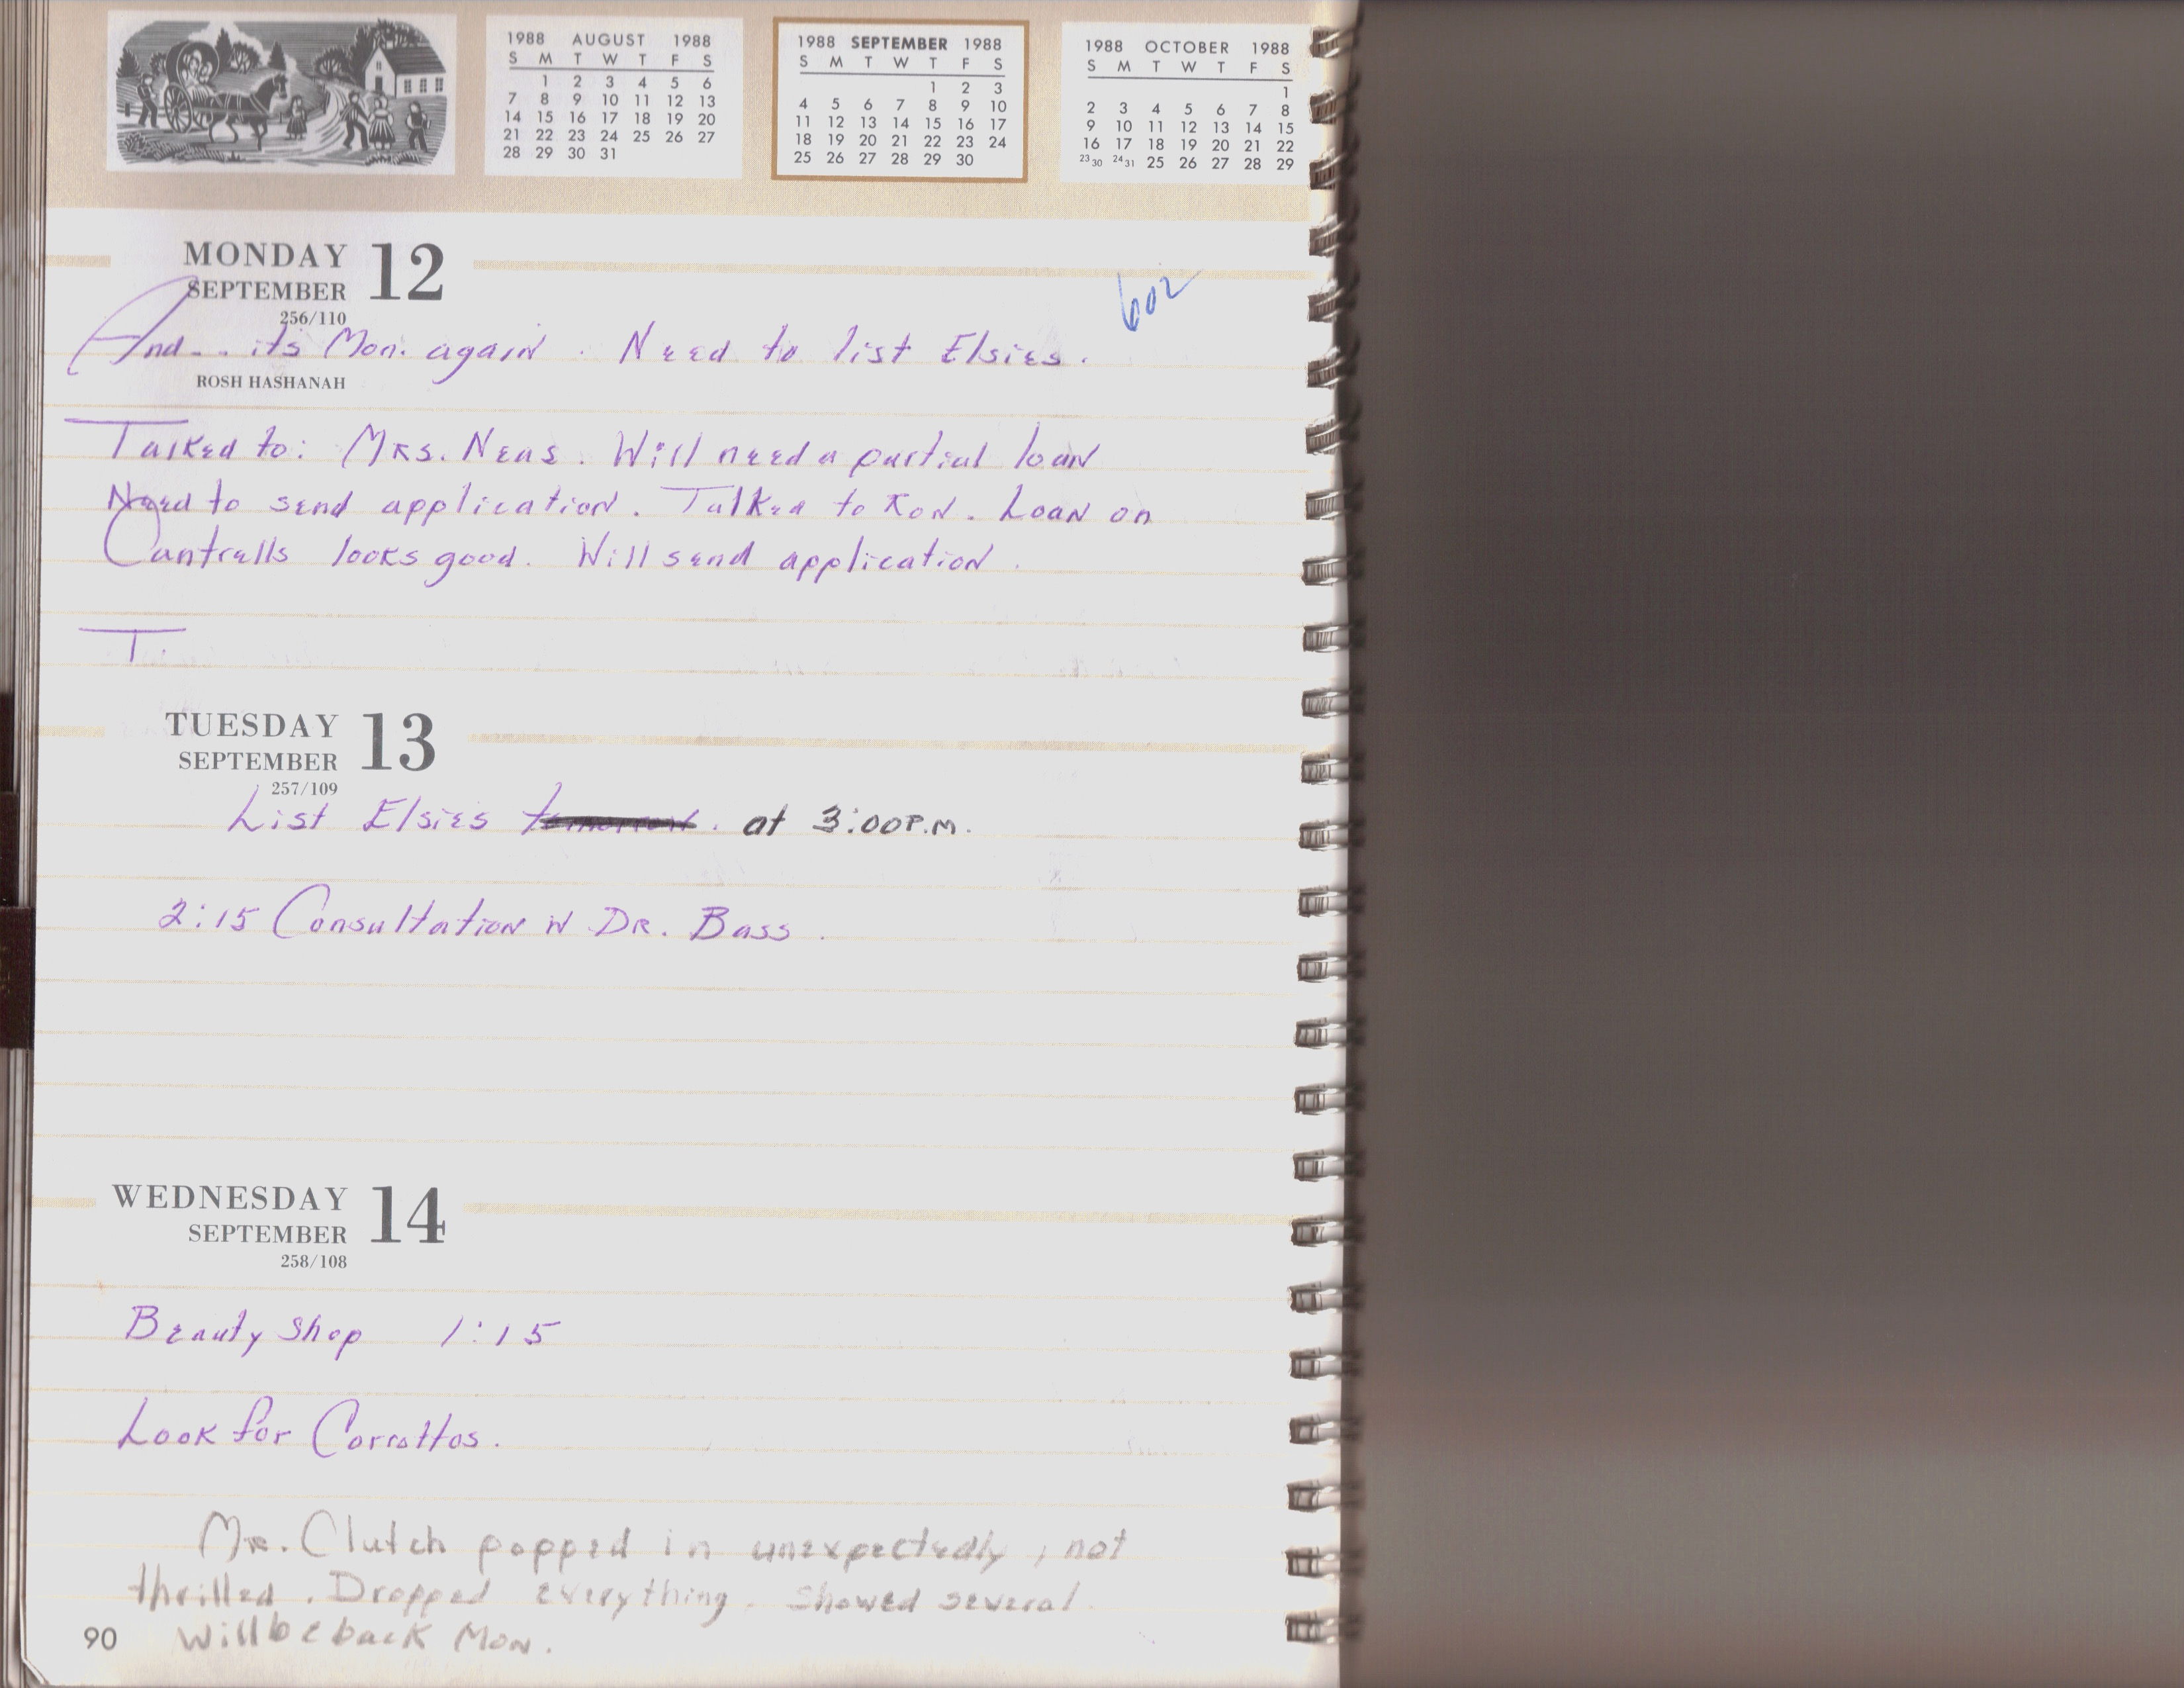 1988 AUGUST 1988
S M T W T F S
1 2 3 4 5 6
7 8 9 10 11 12 13
14 15 16 17 18 19 20
21 22 23 24 25 26 27
28 29 30 31
1988 SEPTEMBER 1988
S M T W T F S
1 2 3
4 5 6 7 8 9 10
11 12 13 14 15 16 17
18 19 20 21 22 23 24
25 26 27 28 29 30
1988 OCTOBER 1988
S M T W T F S
1
2 3 4 5 6 7 8
9 10 11 12 13 14 15
16 17 18 19 20 21 22
23 30 24 31 25 26 27 28 29
MONDAY 12
SEPTEMBER
256/110
602
And... its Mon. again. Need to list Elsies.
ROSH HASHANAH
Talked to: Mrs. Neas. Will need a partial loan
Need to send application. Talked to Ron. Loan on
Cantrells looks good. Will send application.
T.
TUESDAY 13
SEPTEMBER
257/109
List Elsies tomorrow. at 3:00 P.M.
2:15 Consultation W DR. Bass.
WEDNESDAY 14
SEPTEMBER
258/108
Beauty Shop 1:15
Look for Corrottos.
Mr. Clutch popped in unexpectedly, not
thrilled. Dropped everything. Showed several
Will be back Mon.
90